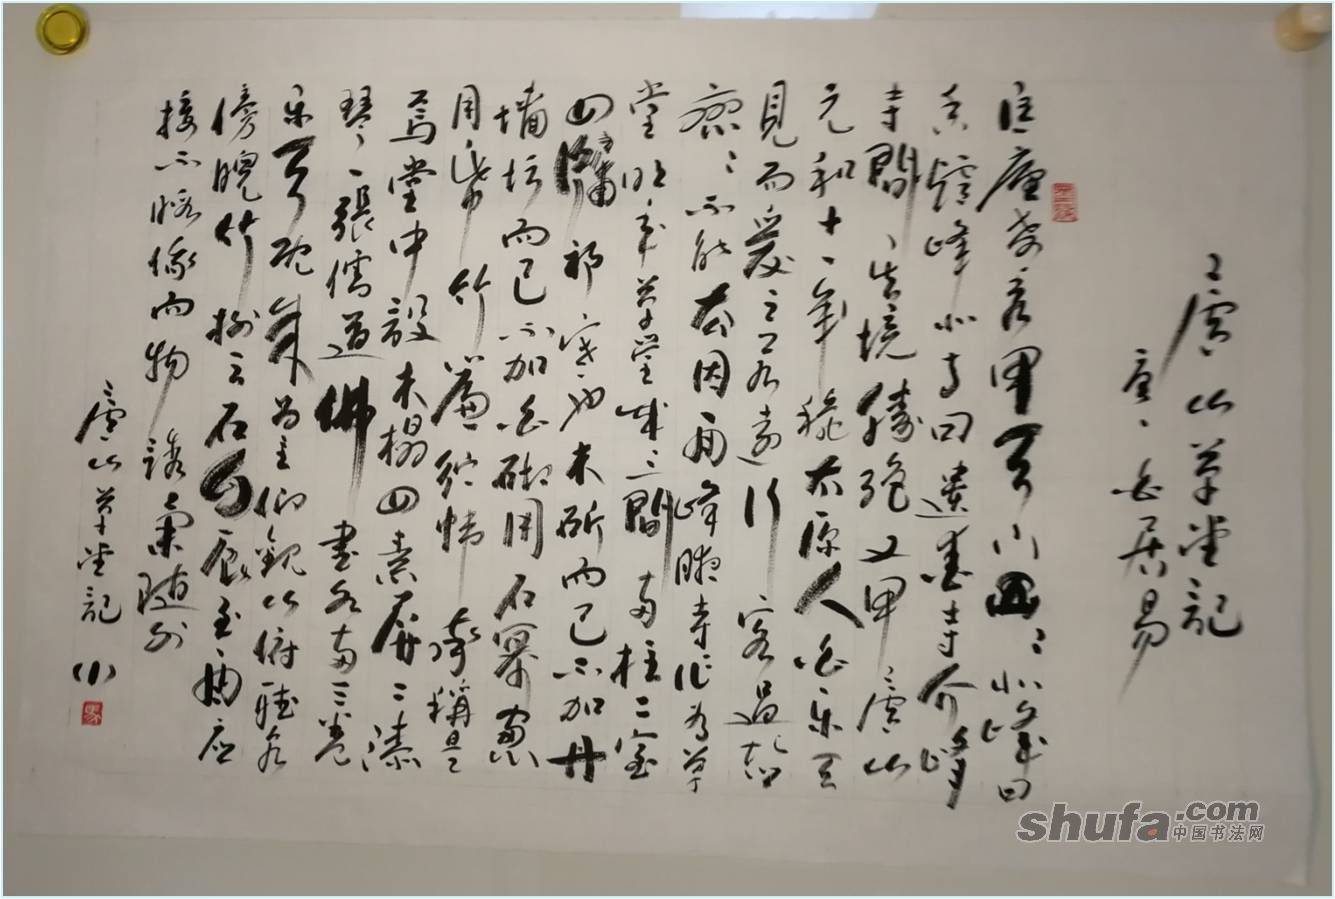 廬山草堂記
唐、白居易
匡廬奇秀甲天下山、北峰曰
香爐峰北寺曰遺愛寺介峰
寺間、其境勝絕又甲廬山
元和十一年秋太原人白乐天
見而愛之若遠行客過故
戀、不能去因面峰腋寺作為草
堂明年春草堂成三間兩柱二室
四牖祁寒也木斫而已不加丹
墙圬而已不加白砌用石冪窗
用紙竹簾紵幃率稱是
焉堂中設木榻四素屏二漆
琴一張儒道佛書各兩三卷
乐天既来為主仰觀山俯聽泉
傍睨竹樹云石自辰至酉應
接不暇俄而物誘氣隨外
廬山草堂記
shufa.com
中国书法网